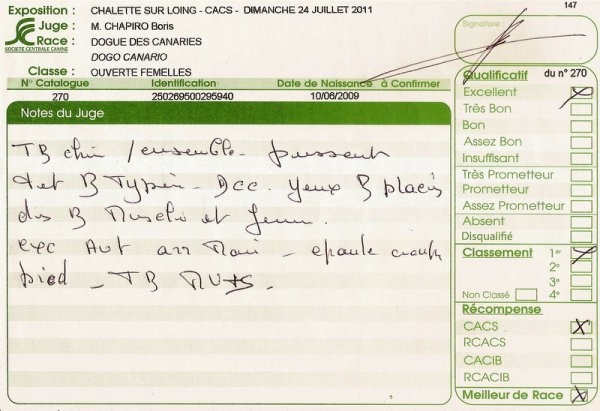 147
Exposition : CHALETTE SUR LOING - CACS - DIMANCHE 24 JUILLET 2011
Juge : M. CHAPIRO Boris
Race : DOGUE DES CANARIES
DOGO CANARIO
SOCIETE CENTRALE CANINE
Classe : OUVERTE FEMELLES
N° Catalogue Identification Date de Naissance à Confirmer
270 250269500295940 10/06/2009
Notes du Juge
TB ensemble puissant
B Yeux B placés
B et
exc Aut arr
pied - TB
Signature
Qualificatif du n° 270
Excellent X
Très Bon
Bon
Assez Bon
Insuffisant
Très Prometteur
Prometteur
Assez Prometteur
Absent
Disqualifié
Classement 1er X
2e
3e
Non Classé 4e
Récompense
CACS X
RCACS
CACIB
RCACIB
Meilleur de Race X